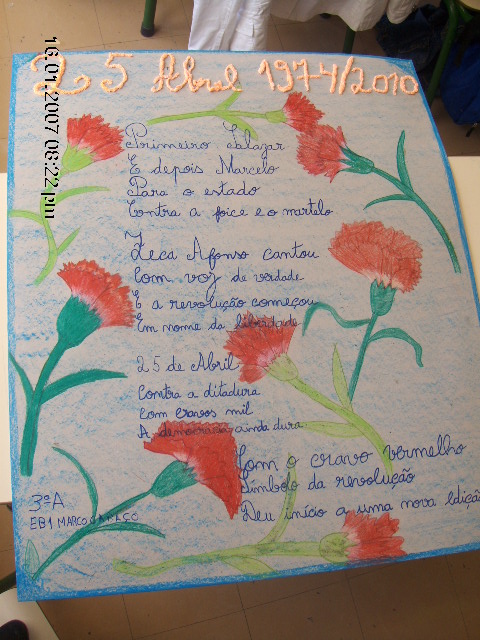 25 Abril 1974/2010
Primeiro Salazar
E depois Marcelo
Para o estado
Contra a foice e o martelo
Zeca Afonso cantou
Com voz de verdade
E a revolução começou
Em nome da liberdade
25 de Abril
Contra a ditadura
Com cravos mil
A democracia ainda dura
Com o cravo vermelho
Símbolo da revolução
Deu início a uma nova edição
3ºA
EB1 MARCO
16.01.2007 03:22 pm